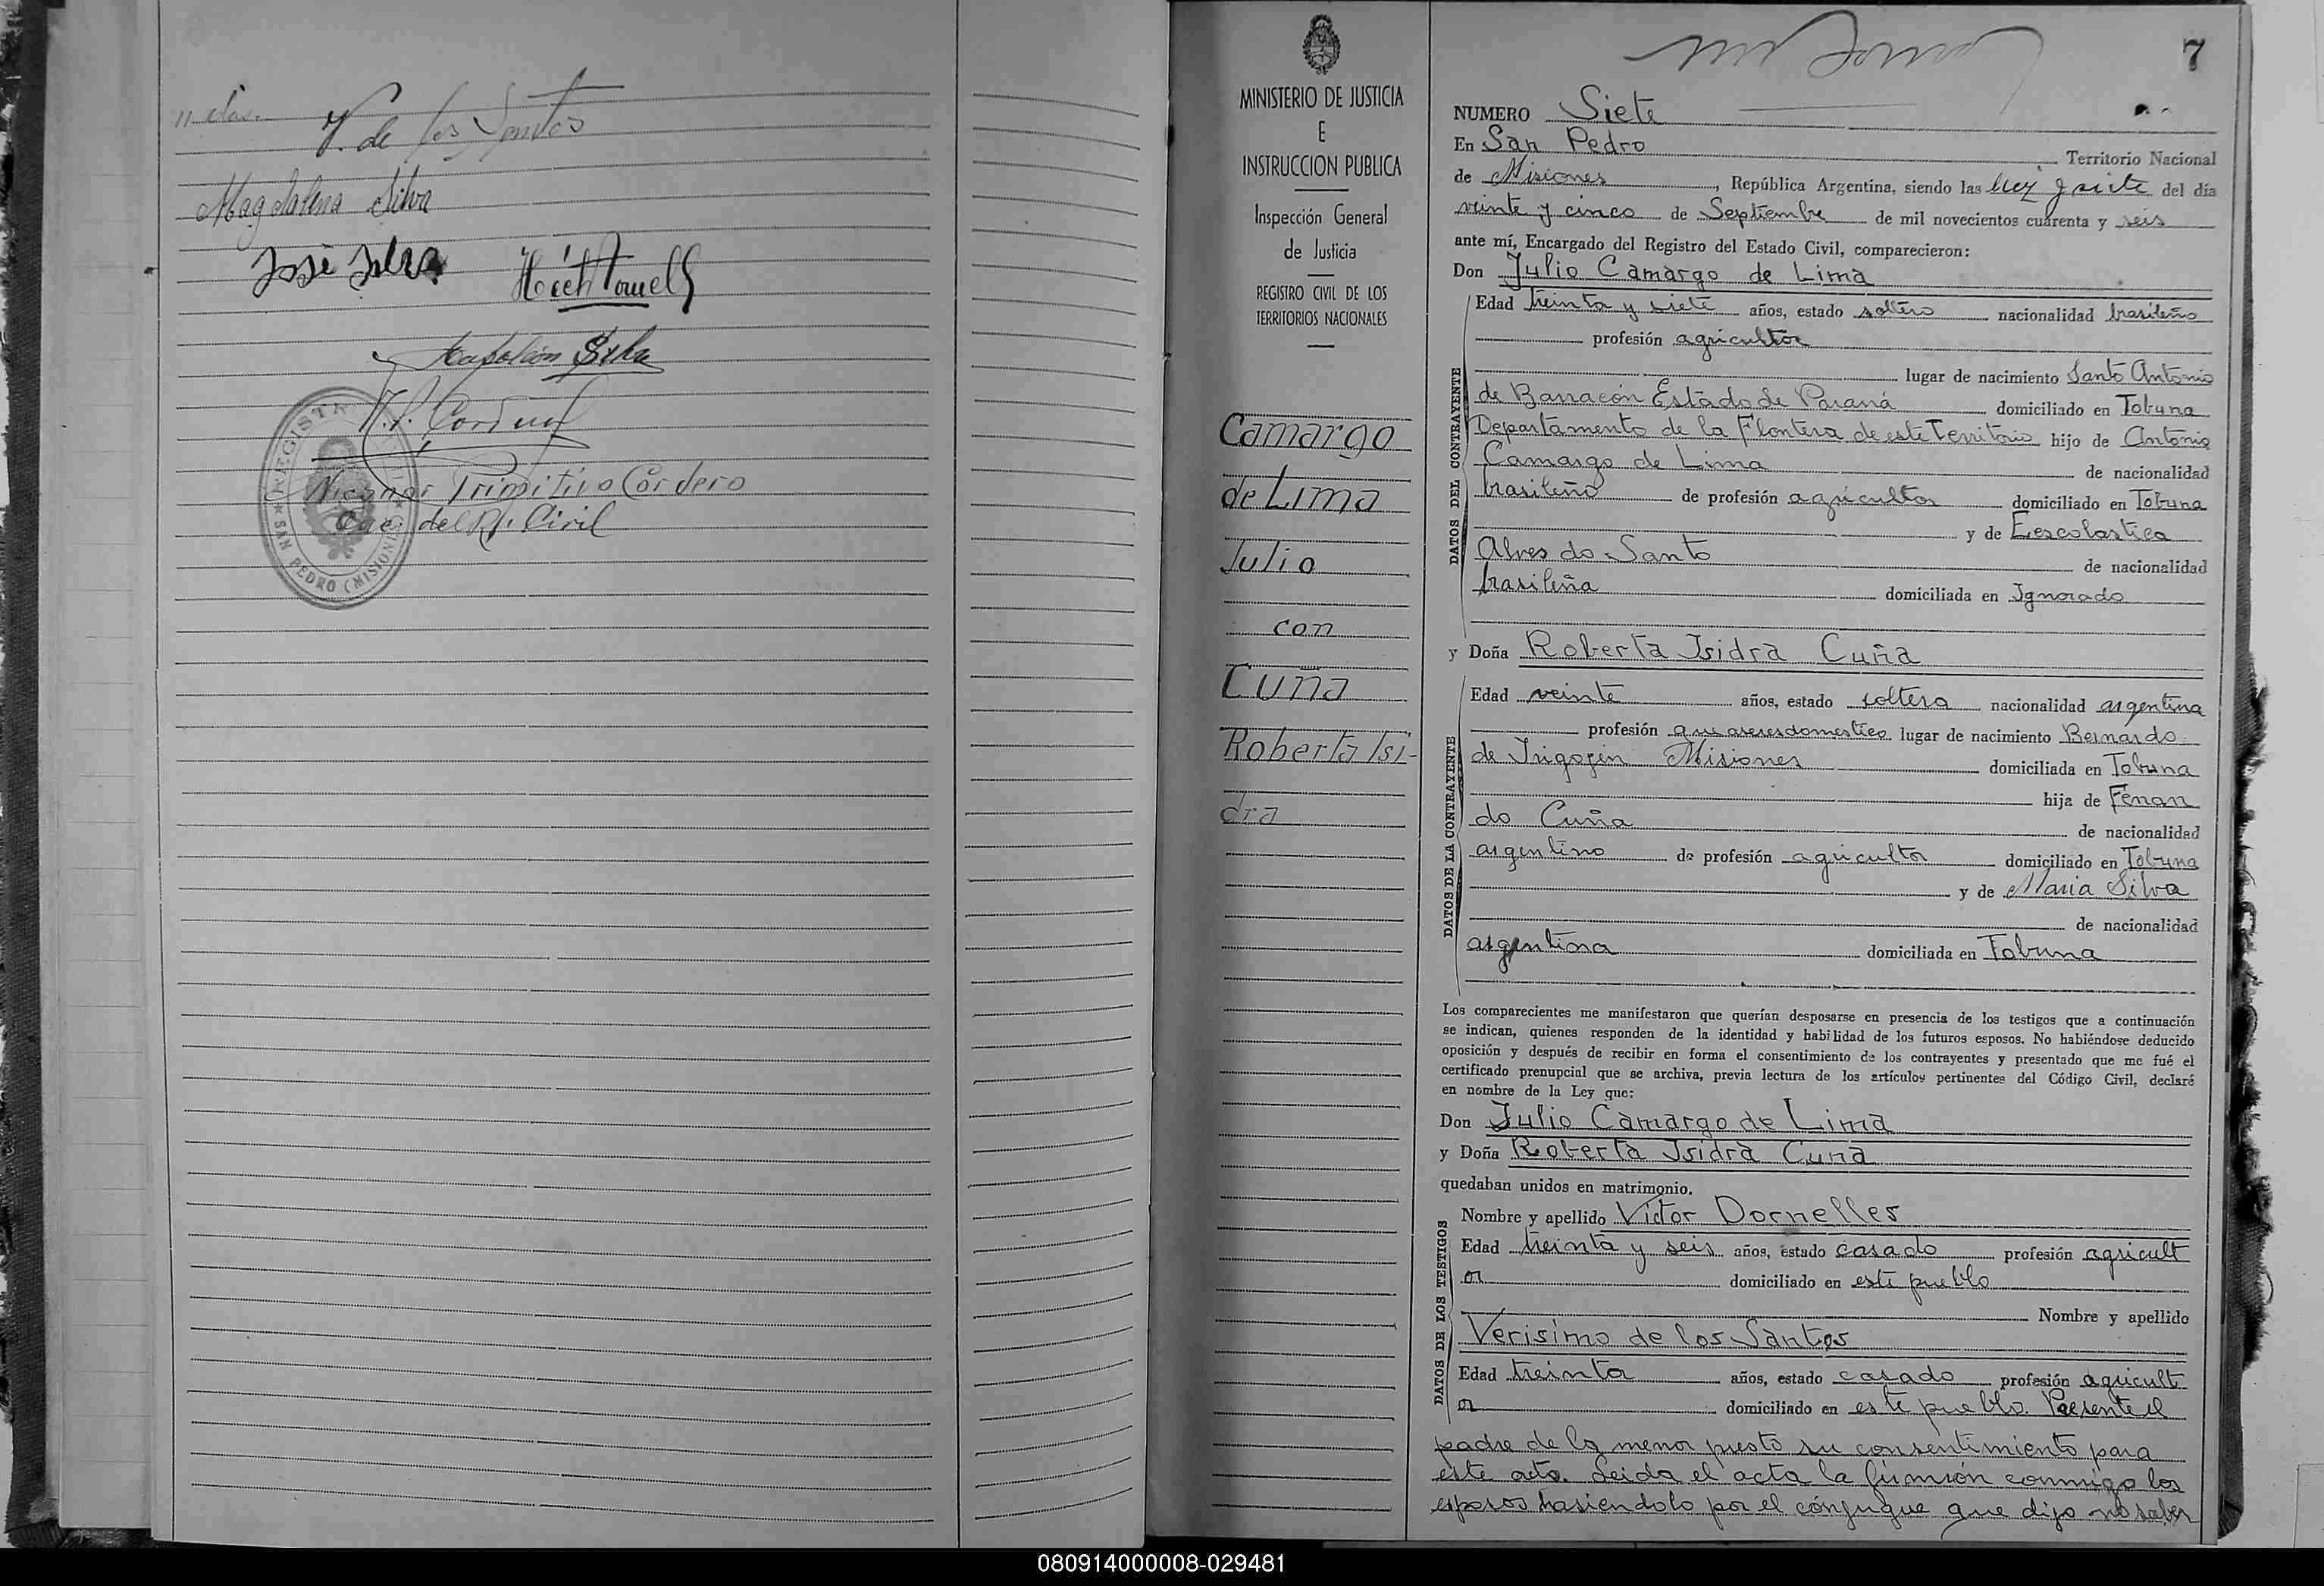 V. de los Santos
Magdalena Silva
José Silva
Napoleón Silva
N. P. Cordero
Nicanor Primitivo Cordero
Enc. del R. Civil
SAN PEDRO (MISIONES)
MINISTERIO DE JUSTICIA
E
INSTRUCCION PUBLICA
Inspección General
de Justicia
REGISTRO CIVIL DE LOS
TERRITORIOS NACIONALES
Camargo
de Lima
Julio
con
Cuña
Roberta Isi-
dra
7
NUMERO Siete
En San Pedro Territorio Nacional
de Misiones, República Argentina, siendo las diez y siete del día
veinte y cinco de Septiembre de mil novecientos cuarenta y seis
ante mí, Encargado del Registro del Estado Civil, comparecieron:
Don Julio Camargo de Lima
DATOS DEL CONTRAYENTE
Edad treinta y siete años, estado soltero nacionalidad brasileño
profesión agricultor
lugar de nacimiento Santo Antonio
de Barracón Estado de Paraná domiciliado en Tobuna
Departamento de la Flontera de este Territorio hijo de Antonio
Camargo de Lima de nacionalidad
brasileño de profesión agricultor domiciliado en Tobuna
y de Eescolastica
Alves do Santo de nacionalidad
brasileña domiciliada en Ignorado
y Doña Roberta Isidra Cuña
DATOS DE LA CONTRAYENTE
Edad veinte años, estado soltera nacionalidad argentina
profesión lugar de nacimiento Bernardo
de Irigogen Misiones domiciliada en Tobuna
hija de Fenan
do Cuña de nacionalidad
argentino de profesión agricultor domiciliado en Tobuna
y de Maria Silva
de nacionalidad
argentina domiciliada en Tobuna
Los comparecientes me manifestaron que querían desposarse en presencia de los testigos que a continuación
se indican, quienes responden de la identidad y habilidad de los futuros esposos. No habiéndose deducido
oposición y después de recibir en forma el consentimiento de los contrayentes y presentado que me fué el
certificado prenupcial que se archiva, previa lectura de los artículos pertinentes del Código Civil, declaré
en nombre de la Ley que:
Don Julio Camargo de Lima
y Doña Roberta Isidra Cuña
quedaban unidos en matrimonio.
DATOS DE LOS TESTIGOS
Nombre y apellido Victor Dornelles
Edad treinta y seis años, estado casado profesión agricult
or domiciliado en este pueblo
Nombre y apellido
Verisimo de los Santos
Edad treinta años, estado casado profesión agricult
or domiciliado en este pueblo. Presente el
padre de la menor presto su consentimiento para
este acto. Leida el acta la firmrón conmigo los
esposos hasiendolo por el cónjugue que dijo no saber
080914000008-029481